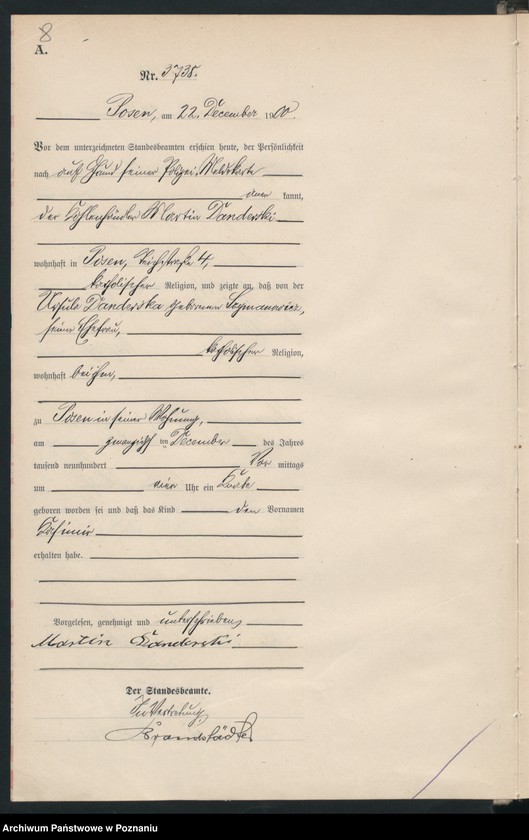 8
A.
Nr. 3738.
Posen, am 22. December 1900.
Vor dem unterzeichneten Standesbeamten erschien heute, der Persönlichkeit
nach auf Grund seiner Polizei-Meldekarte
kannt,
der Kohlenhändler Martin Danderski
wohnhaft in Posen, 4,
katholischer Religion, und zeigte an, daß von der
Ursula Danderska geborenen Szymanowicz,
seiner Ehefrau,
katholischer Religion,
wohnhaft bei ihm,
zu Posen in seiner Wohnung,
am zwanzigsten December des Jahres
tausend neunhundert Vor mittags
um vier Uhr ein Knabe
geboren worden sei und daß das Kind den Vornamen
Kasimir
erhalten habe.
Vorgelesen, genehmigt und unterschrieben
Martin Danderski
Der Standesbeamte.
In Vertretung
Brandstädter
Archiwum Państwowe w Poznaniu